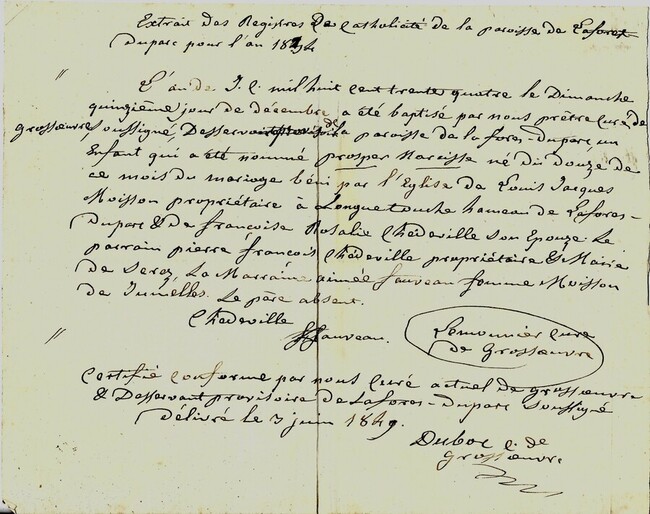 Extrait des Registres De Catholicité de la paroisse de Laforet
Duparc pour l'an 1834
L'an de J. C. mil huit cent trente quatre le Dimanche
quinzième jour de décembre, a été baptisé par nous prêtre curé de
grossœuvre soussigné, Desservant de la paroisse de la fores-Duparc un
Enfant qui a été nommé prosper Narcisse né Du Douze de
ce mois du mariage béni par l'Eglise de Louis Jacques
Moisson propriétaire à Longuetouche hameau de Lafores-
Duparc & de françoise Rosalie Chédeville son Epouze Le
parrain pierre françois Chédeville propriétaire & Maire
de Serez La Marraine aimée fauveau femme Moisson
de Jumelles. Le père absent.
Chédeville
fauveau. Lemonnier curé
de Grossœuvre
Certifié conforme par nous Curé actuel de grossœuvre
& Desservant provisoire de Lafores-Duparc soussigné
Délivré le 3 juin 1849.
Duboc c. de
grossœuvre